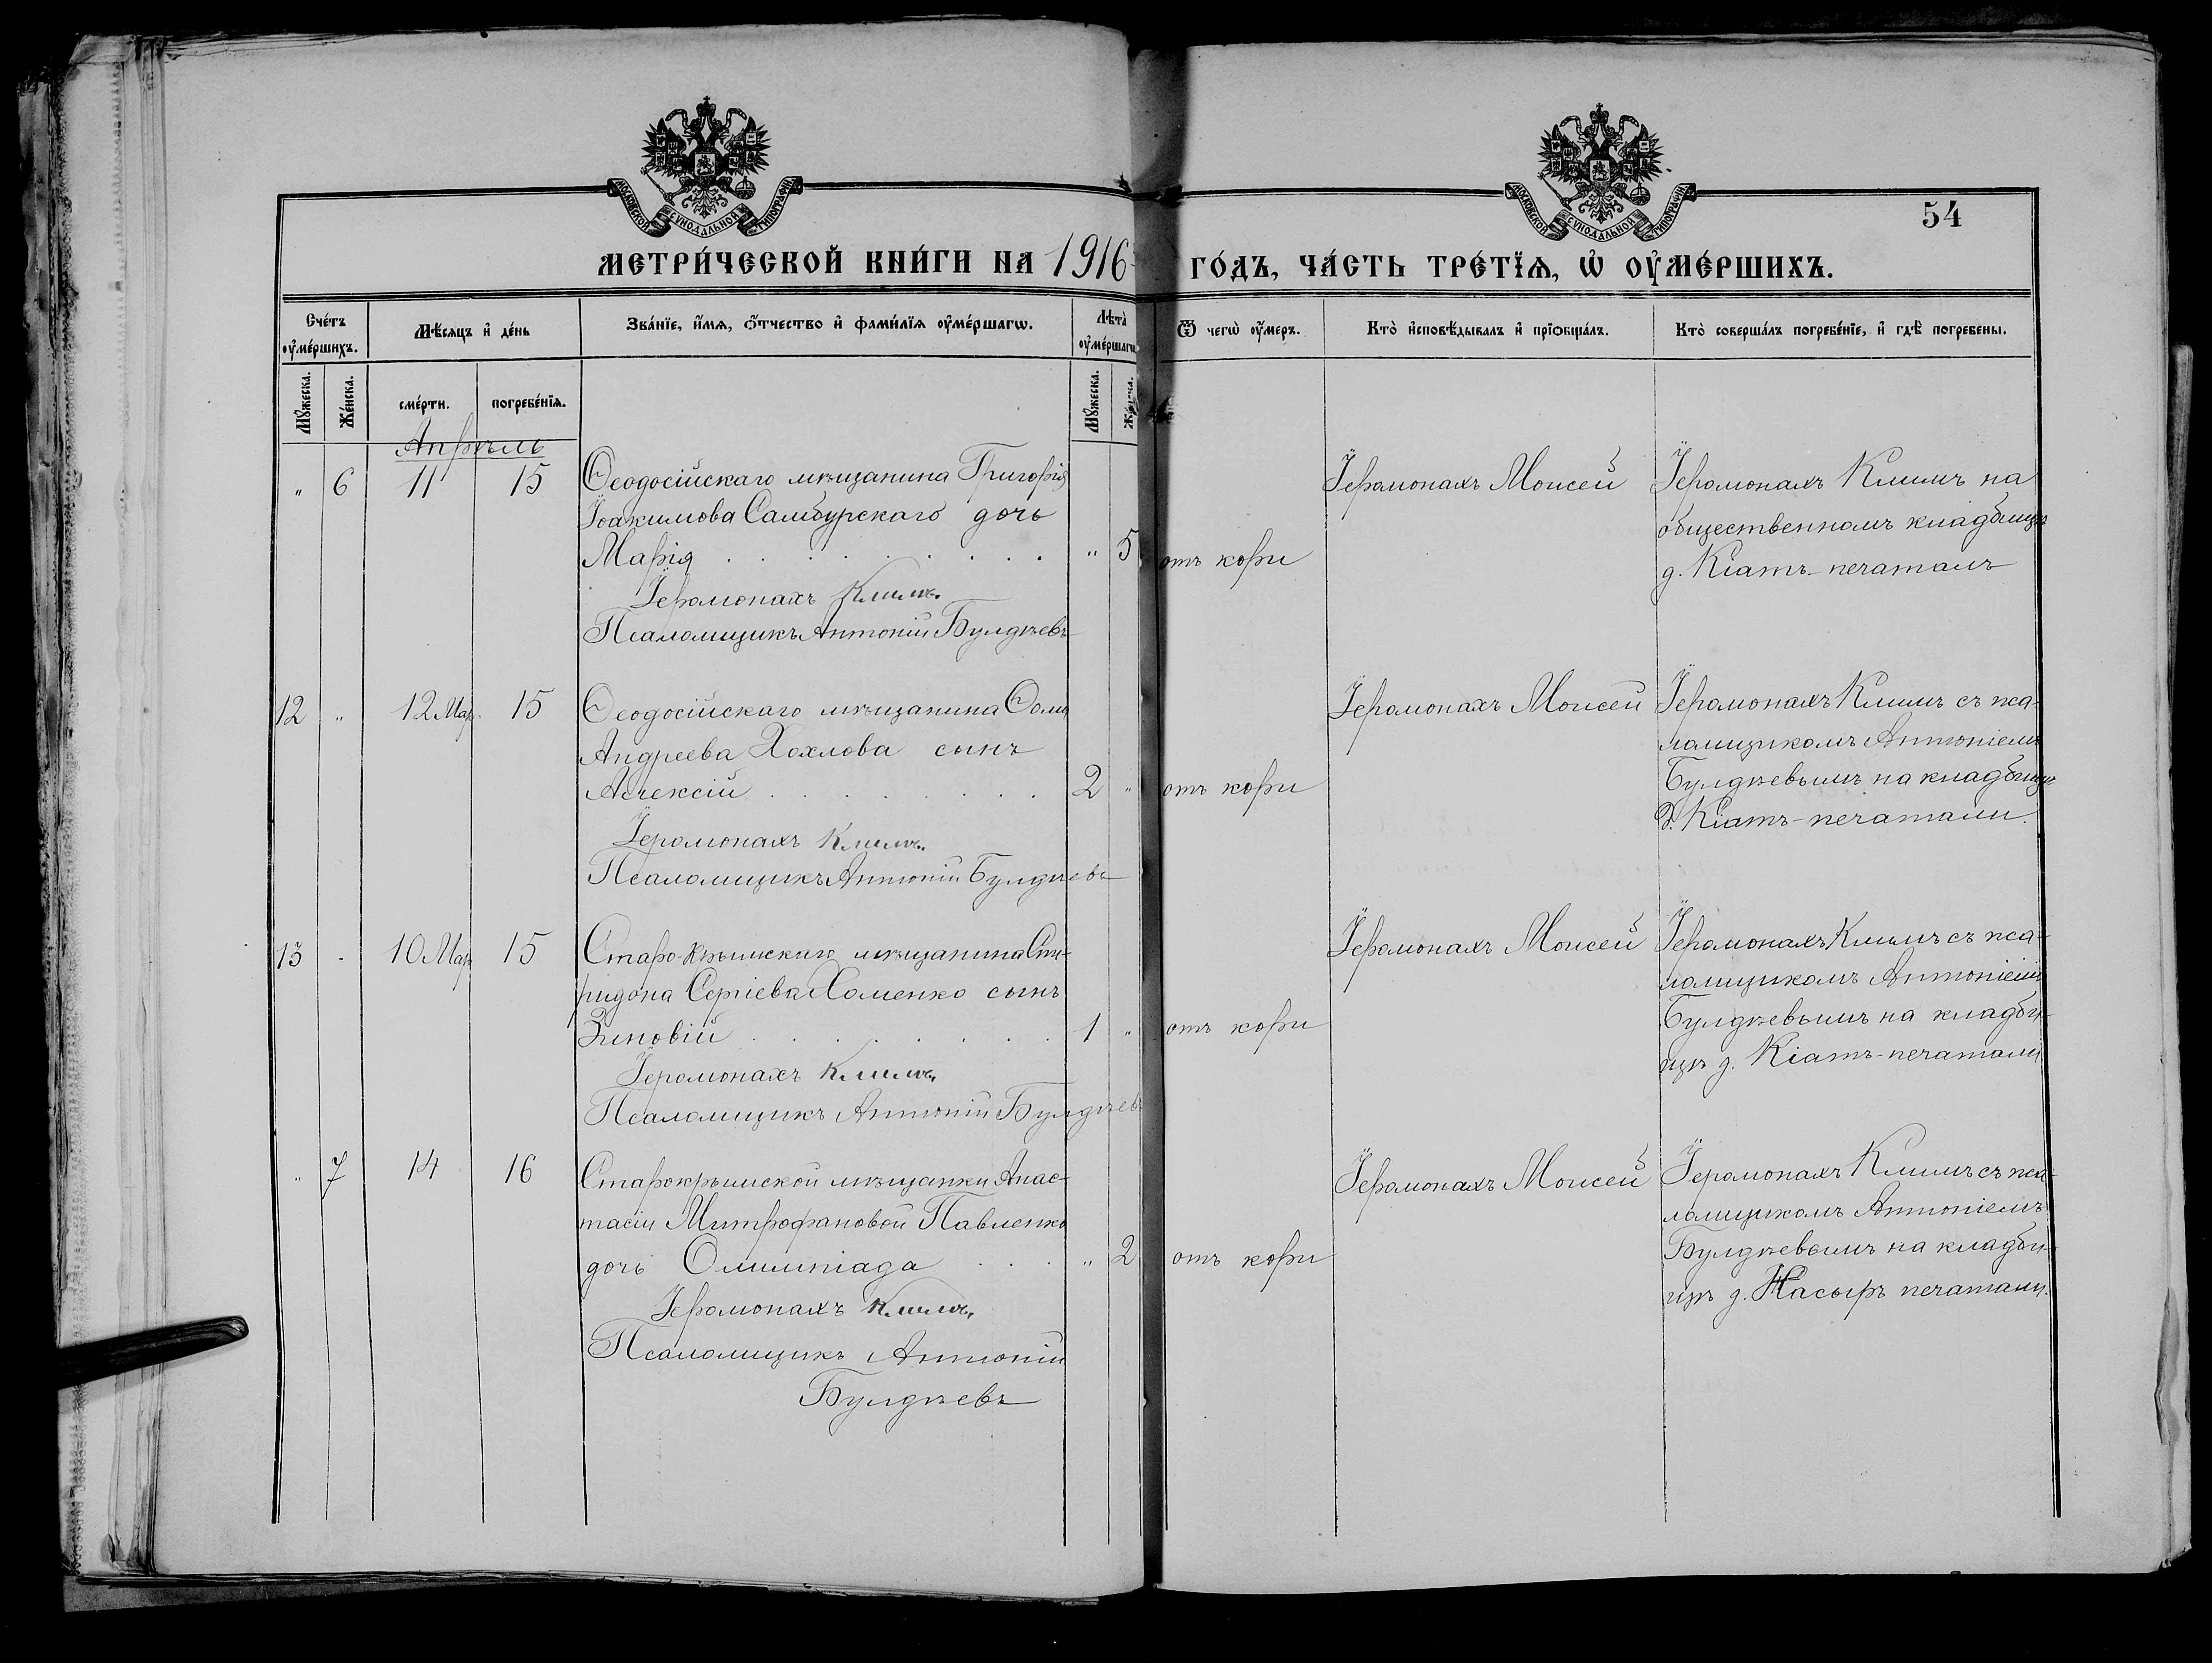 МОСКОВСКОЙ СѴНОДАЛЬНОЙ ТИПОГРАФІИ
МОСКОВСКОЙ СѴНОДАЛЬНОЙ ТИПОГРАФІИ
54
МЕТРИ́ЧЕСКОЙ КНИ́ГИ НА 1916 ГО́ДЪ, ЧА́СТЬ ТРЕ́ТЇѦ, Ѡ҆ ОУ҆МЕ́РШИХЪ.
Сче́тъ оу҆ме́ршихъ.
Мѣ́сяцъ и҆ де́нь
Зва́нїе, и҆́мѧ, ѻ҆́тчество и҆ фами́лїѧ оу҆ме́ршагѡ.
Лѣта̀ оу҆ме́ршагѡ
Ѿ чегѡ̀ оу҆́меръ.
Кто̀ и҆сповѣ́дывалъ и҆ прїѻбща́лъ.
Кто̀ соверша́лъ погребе́нїе, и҆ гдѣ̀ погребены.
Мꙋ́жеска.
Же́нска.
сме́рти.
погребе́нїѧ.
Мꙋ́жеска.
Апрѣль
" 6 11 15 Ѳеодосійскаго мѣщанина Григорія
Іоакимова Самбурскаго дочь
Марія . . . . . . . . . " 5 отъ кори
Іеромонахъ Климъ.
Псаломщикъ Антоній Булдѣевъ
Іеромонахъ Моисей
Іеромонахъ Климъ на
общественномъ кладбищѣ
д. Кіатъ-печаталъ
12 " 12 Мар. 15 Ѳеодосійскаго мѣщанина Ѳомы
Андреева Хохлова сынъ
Алексій . . . . . . . . 2 " отъ кори
Іеромонахъ Климъ.
Псаломщикъ Антоній Булдѣевъ
Іеромонахъ Моисей
Іеромонахъ Климъ съ пса-
ломщикомъ Антоніемъ
Булдѣевымъ на кладбищѣ
д. Кіатъ-печатали.
13 " 10 Мар 15 Старо-Крымскаго мѣщанина Спи-
ридона Сергіева Хоменко сынъ
Зиновій . . . . . . . . 1 " отъ кори
Іеромонахъ Климъ.
Псаломщикъ Антоній Булдѣевъ
Іеромонахъ Моисей
Іеромонахъ Климъ съ пса-
ломщикомъ Антоніемъ
Булдѣевымъ на кладби-
щѣ д. Кіатъ-печатали
" 7 14 16 Старокрымской мѣщанки Анас-
тасіи Митрофановой Павленко
дочь Олимпіада . . . " 2 отъ кори
Іеромонахъ Климъ.
Псаломщикъ Антоній
Булдѣевъ
Іеромонахъ Моисей
Іеромонахъ Климъ съ пса-
ломщикомъ Антоніемъ
Булдѣевымъ на кладби-
щѣ д. Насыръ печатали.